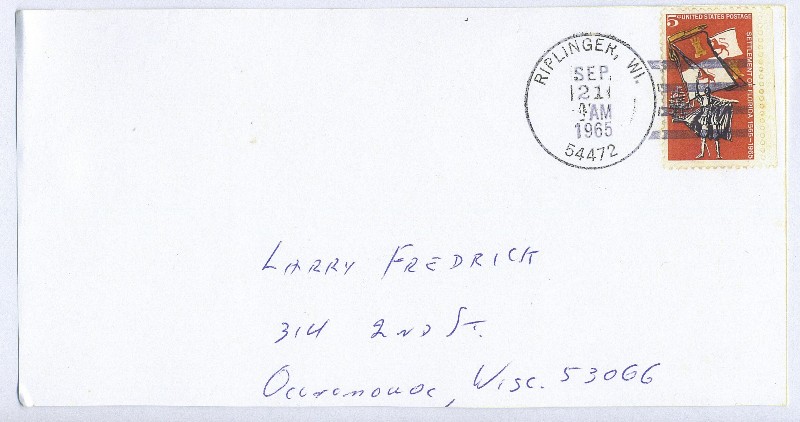 RIPLINGER, WI.
SEP
21
AM
1965
54472
5¢ UNITED STATES POSTAGE
SETTLEMENT OF FLORIDA 1565-1965
LARRY FREDRICK
314 2ND ST.
Oconomowoc, Wisc. 53066